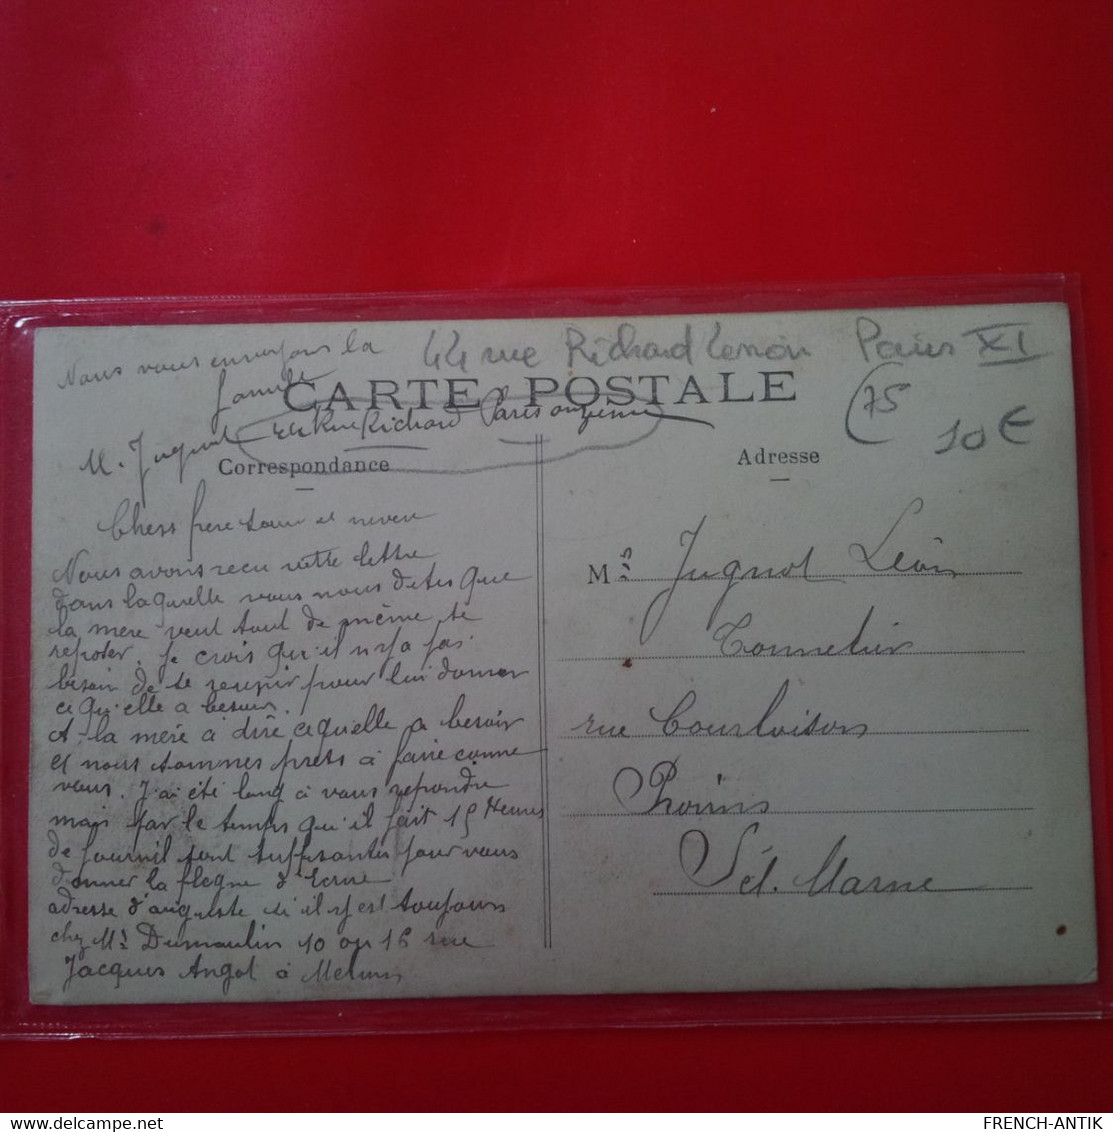 Nous vous envoyons la
famille
44 rue Richard Lenoir Paris XI
CARTE POSTALE
(75
10€
M. Jugnot 44 Rue Richard Paris onzieme
Correspondance
Adresse
Chers frere soeur et neveu
Nous avons recu votte lettre
dans laquelle vous nous dites que
la mère veut tout de même se
reposer. Je crois qu'il n'y a pas
besoin de se reunir pour lui donner
ce qu'elle a besoin.
A la mère à dire ce quelle a besoin
et nous sommes prets à faire comme
vous. J'ai été long à vous repondre
mais par le temps qu'il fait 15 Heures
de fournil sont suffisantes pour vous
donner la flegme d'ecrire
adresse d'auguste si il y est toujours
chez Mr Dumoulin 10 ou 16 rue
Jacques Angot à Melun
M rs Jugnot Léon
Tonnelier
rue Courloison
Provins
Set. Marne
FRENCH-ANTIK